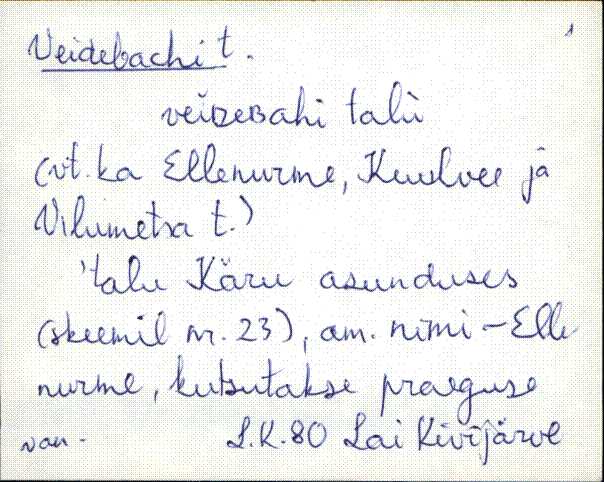 Veidebachi t.
1
veiᴅeʙahi talu
(vt. ka Ellenurme, Kuulvee ja
Vilumetsa t.)
'talu Käru asunduses
(skeemil nr. 23), am. nimi – Elle
nurme, kutsutakse praeguse
van. L.K. 80 Lai Kivijärve